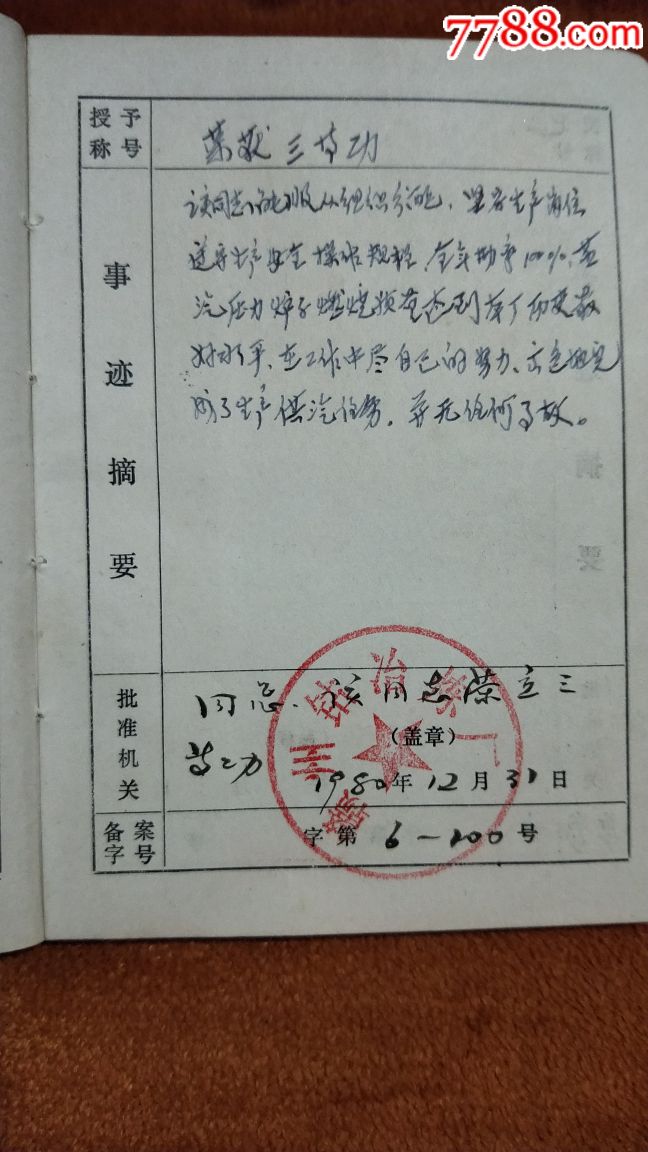 7788.com
授予
称号
荣获三等功
事迹摘要
该同志能服从组织分配，坚守生产岗位
遵守生产安全操作规程，全年出勤率100%，蒸
汽压力炉子燃烧
好水平，在工作中尽自己的努力、出色地完
成了生产供汽任务，并无任何事故。
批准机关
同意该同志荣立三
等功
（盖章）
1980年12月31日
备案
字号
字第6-200号